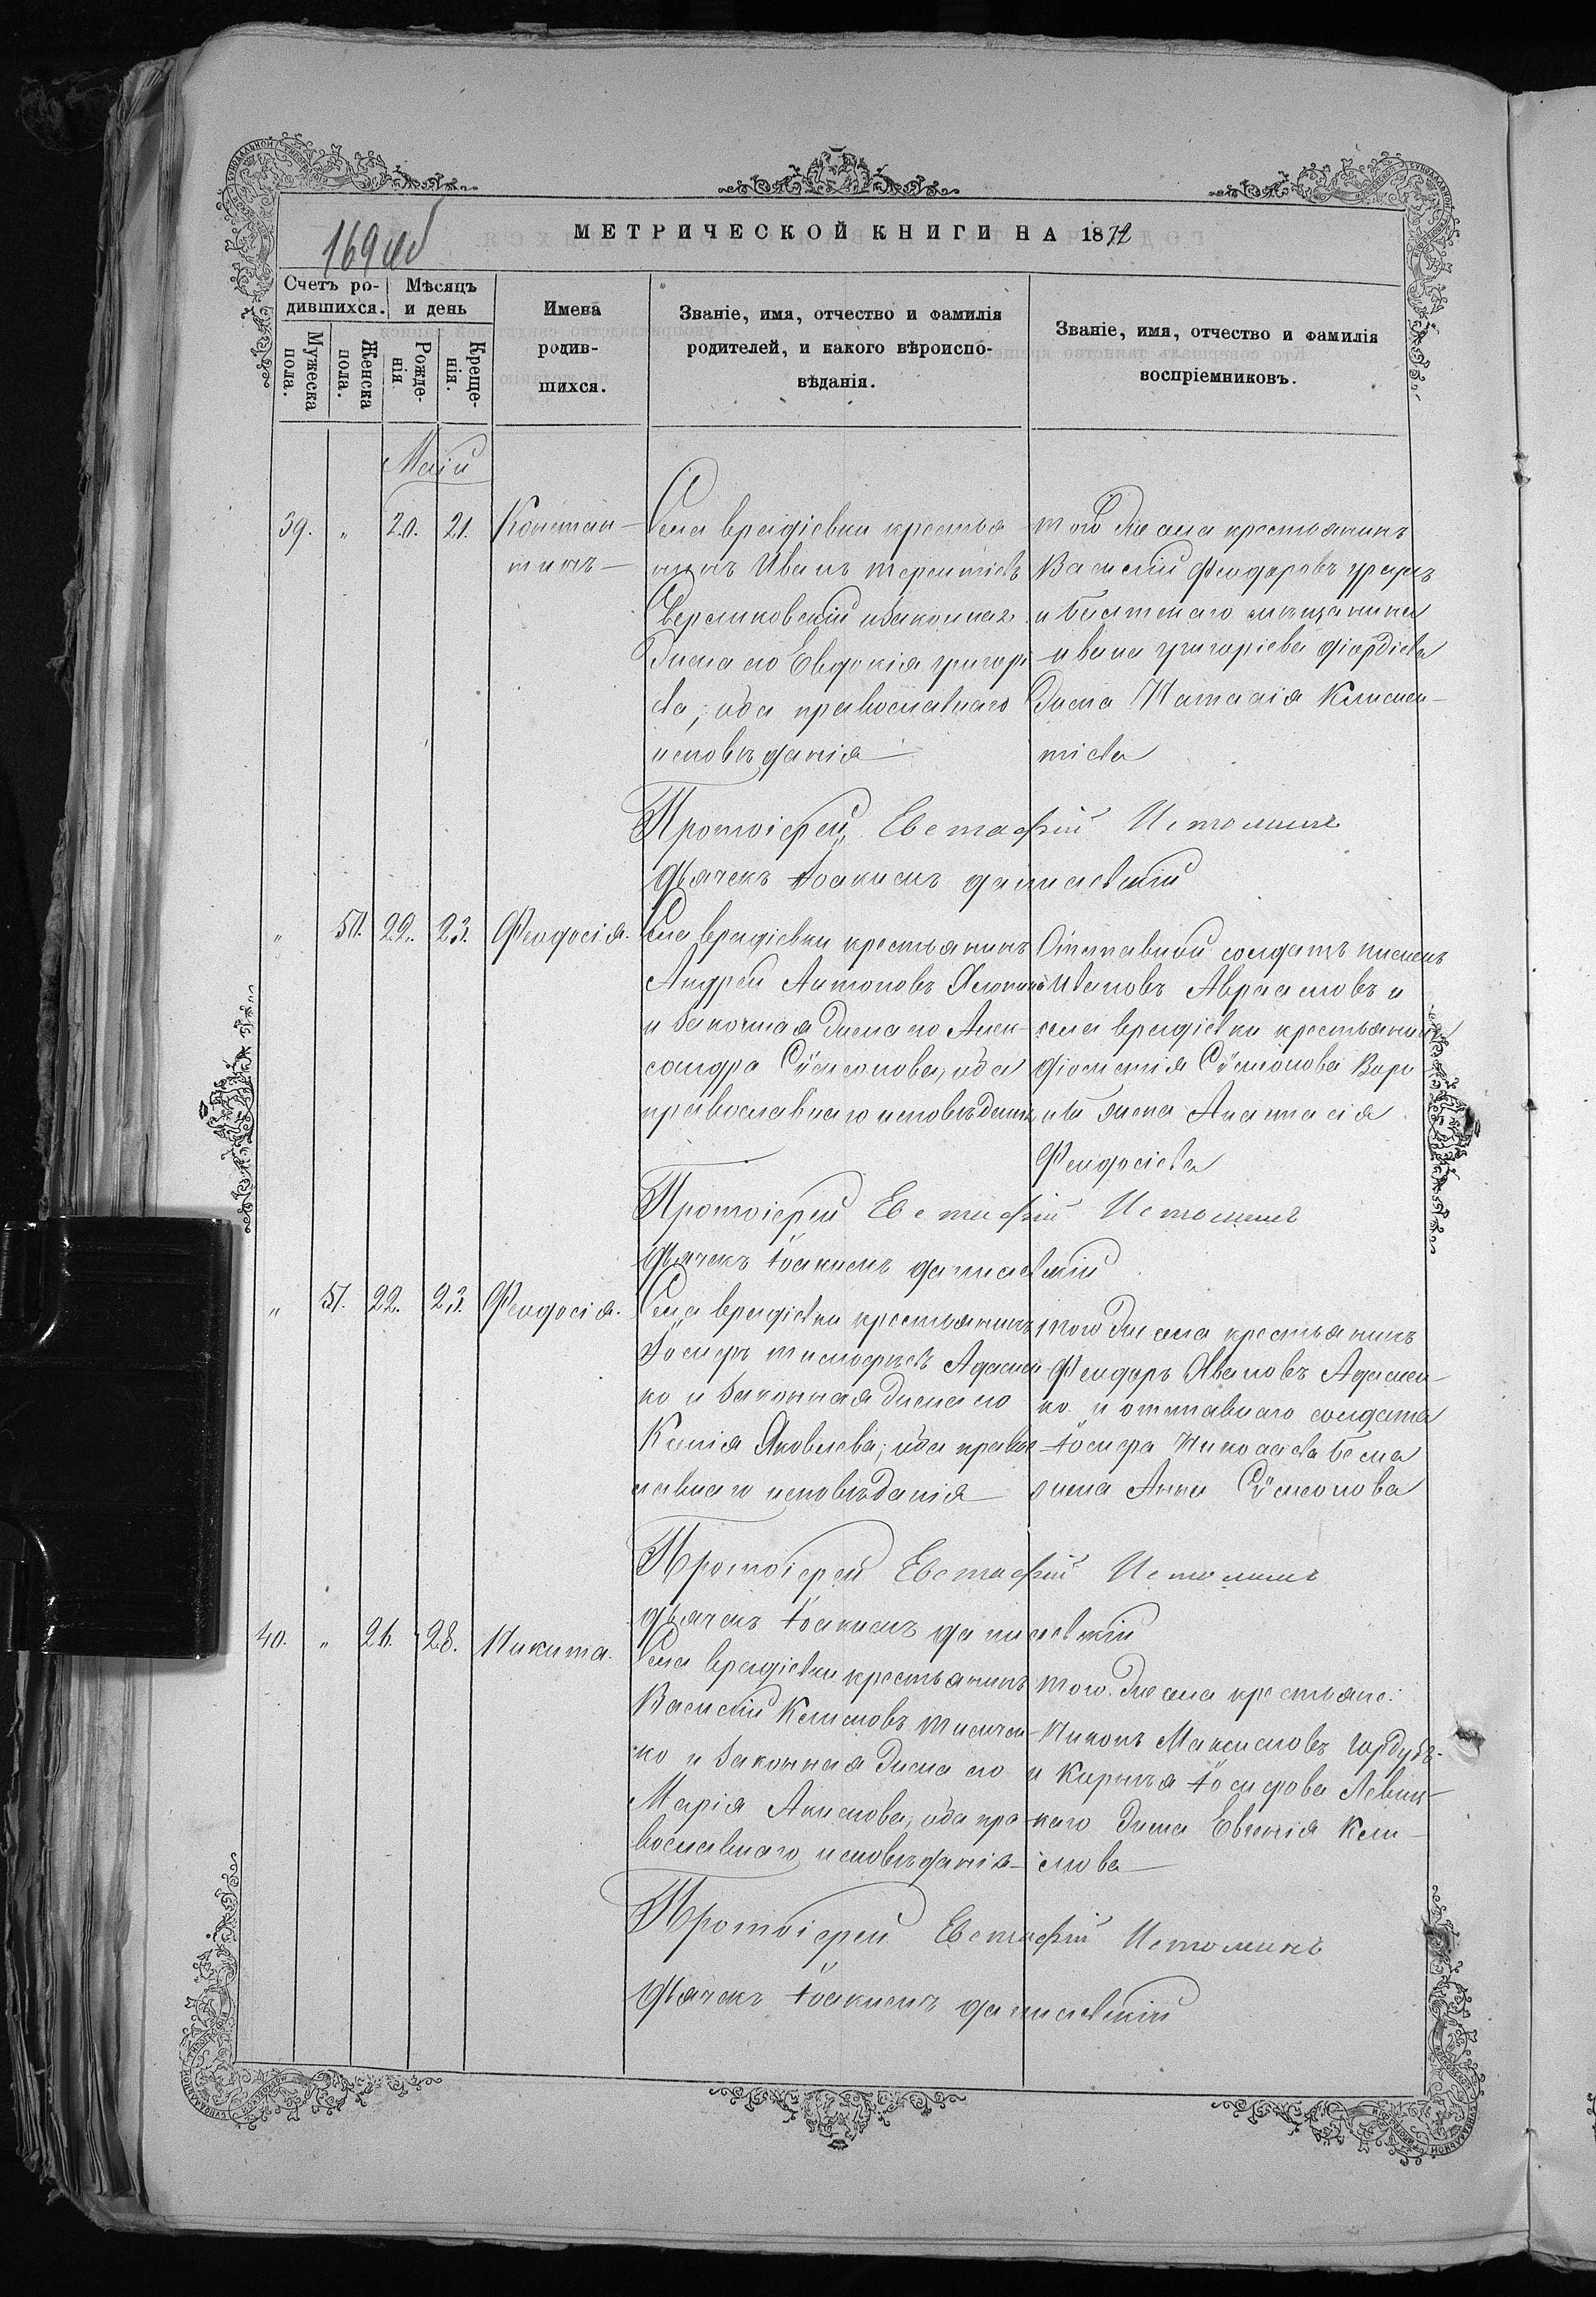 МЕТРИЧЕСКОЙ КНИГИ НА 1872
169 об
Счетъ ро-
дившихся.
Мужеска
пола.
Женска
пола.
Мѣсяцъ
и день
Рожде-
нія
Креще-
нія.
Имена
родив-
шихся.
Званіе, имя, отчество и фамилія
родителей, и какого вѣроиспо-
вѣданія.
Званіе, имя, отчество и фамилія
воспріемниковъ.
Маій
39. " 20. 21. Констан-
тинъ
Села врадіевки крестья
нинъ Иванъ терентіевъ
и законная
жена его Евдокія григорі
ева, оба православнаго
исповѣданія
того же села крестьянинъ
Василій Феодоровъ
и мѣщанина
ивана григоріева
жена Наталія Климен-
тіева
Протоіерей Евстафій Истоминъ
дьячекъ Іоакимъ
" 50. 22. 23. Феодосія.
Села врадіевки крестьянинъ
Андрей Антоновъ
и законная жена его Алек-
сандра Сѵмеонова, оба
православнаго исповѣданія
Отставной солдатъ
Ивановъ Авраамовъ и
села врадіевки крестьянина
Сѵмеонова
жена Анастасія
Феодосіева
Протоіерей Евстафій Истоминъ
дьячекъ Іоакимъ
" 51. 22. 23. Феодосія.
Села врадіевки крестьянинъ
Іосифъ тимофѣевъ Адамен
ко и законная жена его
Ксенія Яковлева, оба правос
лавнаго исповѣданія
того же села крестьянинъ
Феодоръ Ивановъ Адамен-
ко и отставнаго солдата
Іосифа Николаева
жена Анна Сѵмеонова
Протоіерей Евстафій Истоминъ
дьячекъ Іоакимъ
40. " 26. 28. Никита.
Села врадіевки крестьянинъ
Василій Климовъ
ко и законная жена его
Марія Акимова, оба пра
вославнаго исповѣданія
того же села крестьяне:
Никонъ Максимовъ
и Іосифова Левиц-
каго жена Евгенія Кли-
мова
Протоіерей Евстафій Истоминъ
дьячекъ Іоакимъ